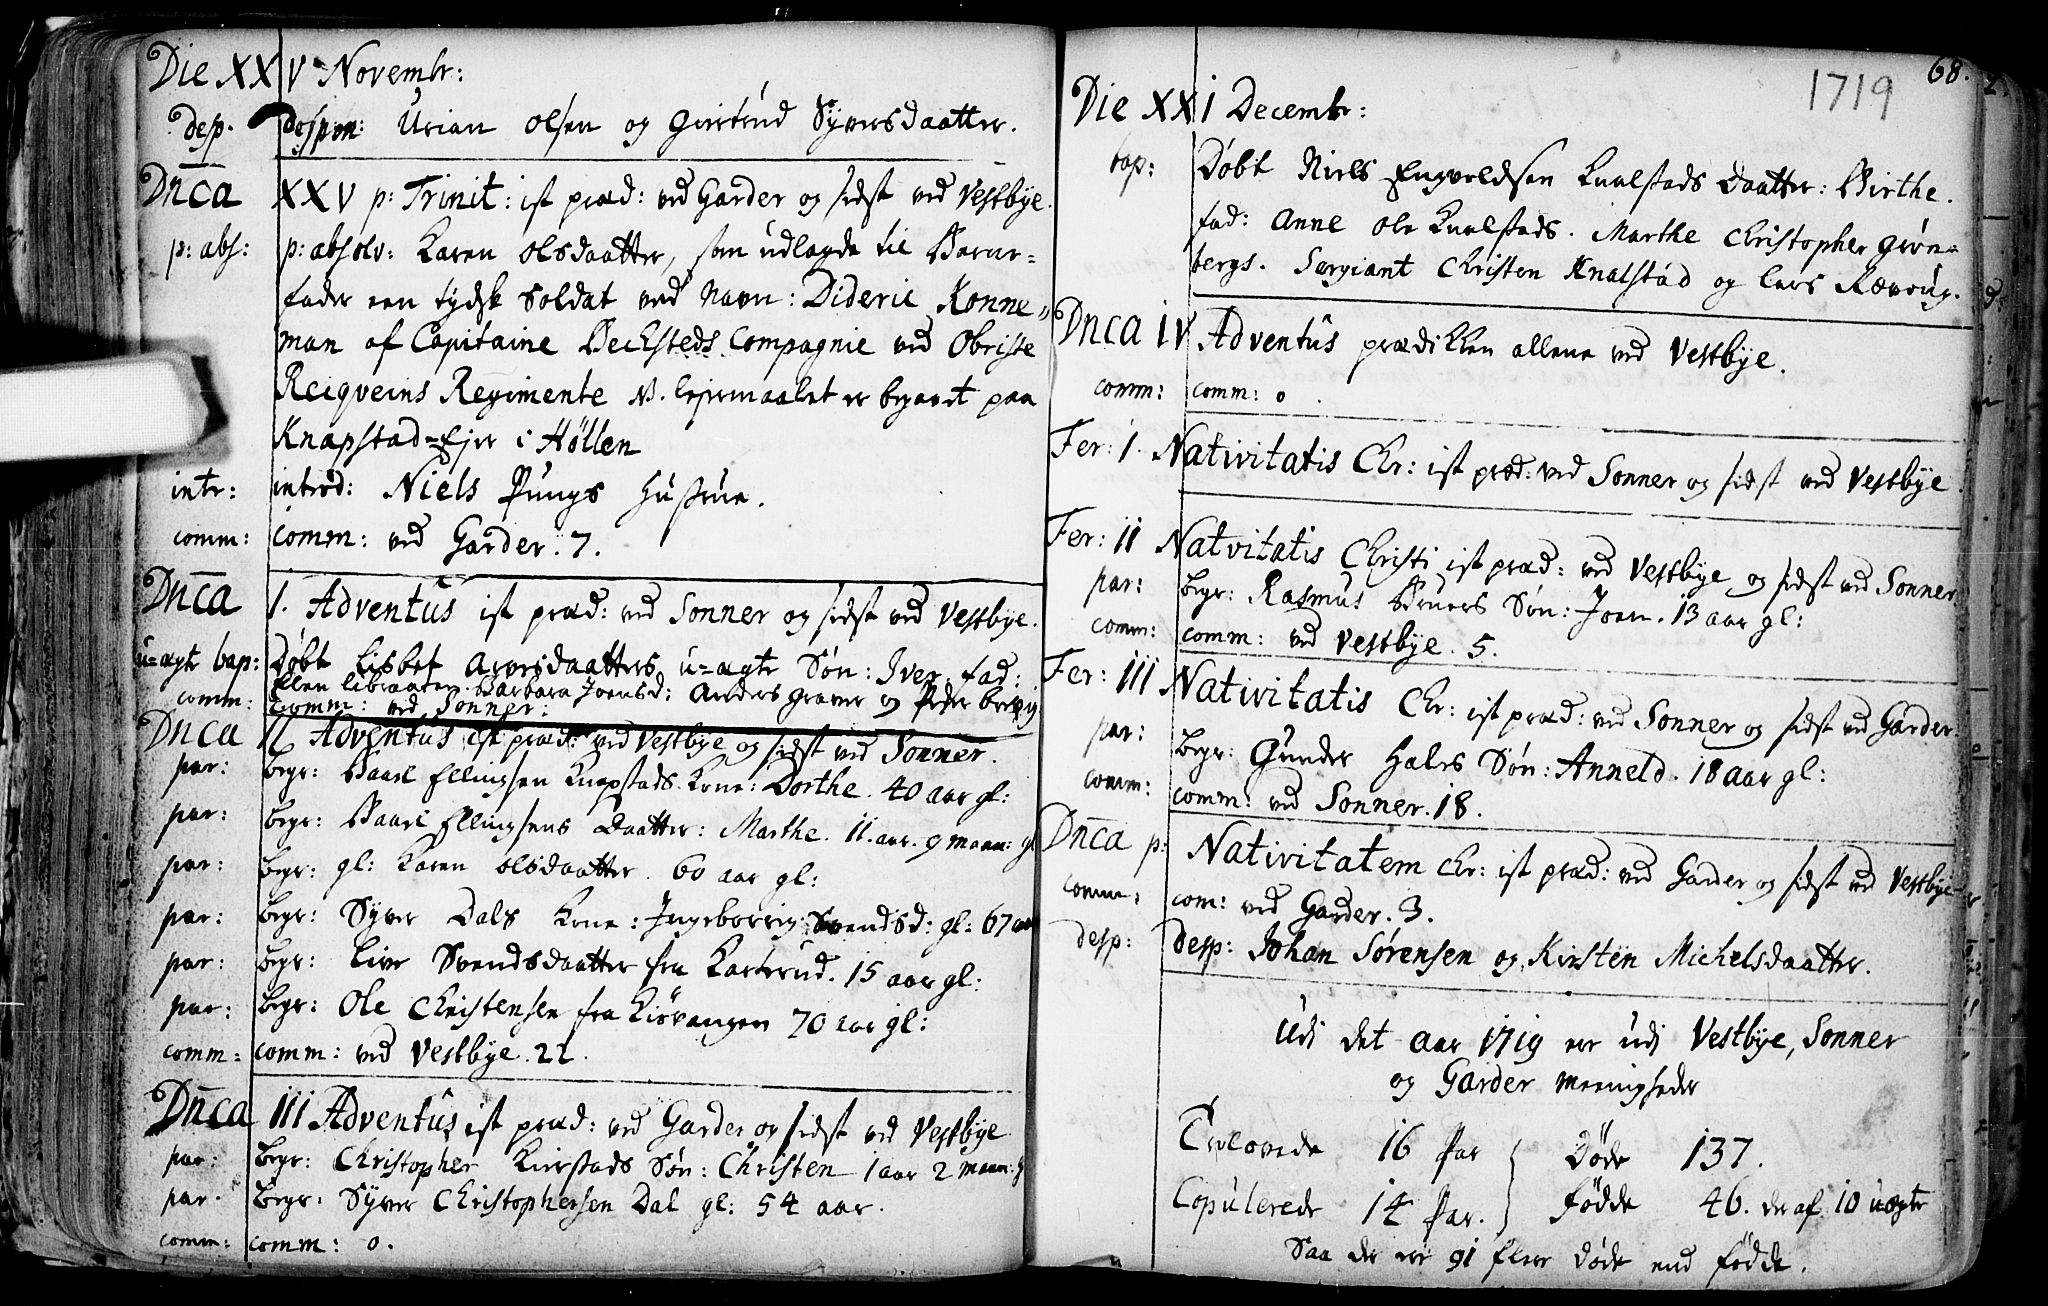 Die XXV Novembr:
desp. despon: Urian Olsen og Giertrud Syversdaatter.
Dnca XXV p: Trinit: ist præd: ved Garder og sidst ved Vestbye.
p: abs: p: absolv: Karen Olsdaatter, som udlagde til Barne=
fader een tydsk Soldat ved Navn: Dideric Konne=
man af Capitaine Becksteds Compagnie ved Obriste
Reiqveins Regimente NB. lejermaalet er begaaet paa
Knapstad=Ejer i Höllen
intr: introd: Niels Pungs Hustrue.
comm: comm: ved Garder. 7.
Dnca 1. Adventus ist præd: ved Sonner og sidst ved Vestbye.
u=ægte bap: Døbt Lisbet Arersdaatters u=ægte Søn: Iver. fad:
Ellen Barbara Joensd: Anders Graver og Peder
comm: comm: ved Sonner:
Dnca II Adventus ist præd: ved Vestbye og sidst ved Sonner.
par: begr: Baard Ellingsen Knapstads Kone: Dorthe. 40 aar gl:
par: begr: Baard Ellingsens Daatter: Marthe. 11. aar. 9 maan: gl
par: begr: gl: Karen Olsdaatter. 60 aar gl:
par: begr: Syver Dals Kone: Ingeborrig Svendsd: gl: 67 aar
par: begr: Live Svendsdaatter fra Karterud. 15 aar gl:
par: begr: Ole Christensen fra Kiövangen 70 aar gl:
comm: comm: ved Vestbye. 22.
Dnca III Adventus ist præd: ved Garder og sidst ved Vestbye
par: begr: Christopher Søn: Christen 1 aar 2 maan: g
par. begr: Syver Christophersen Dal gl: 54 aar.
comm: comm: 0.
68.
1719
Die XXI Decembr:
bap: Døbt Niels Engvoldsen Knalstads Daatter: Birthe.
fad: Anne Ole Knalstads. Marthe Christopher Grøn=
bergs. Sergiant Christen Knalstad og Lars
Dnca IV Adventus prædikken allene ved Vestbye.
comm: comm: 0.
Fer: 1. Nativitatis Chr: ist præd: ved Sonner og sidst ved Vestbye.
Fer: II Natvitatis Christi ist præd: ved Vestbye og sidst ved Sonner
par: begr: Rasmus Bruers Søn: Joen. 13 aar gl:
comm: comm: ved Vestbye. 5.
Fer: III Nativitatis Chr: ist præd: ved Sonner og sidst ved Garder
par: begr: Gunder Søn: Anneld. 18 aar gl:
comm: comm: ved Sonner. 18.
Dnca p: Nativitatem Chr: ist præd: ved Garder og sidst ved Vestbye
comm: com: ved Garder. 3.
desp: desp: Johan Sørensen og Kirsten Michelsdaatter.
Udi det aar 1719 ere udi Vestbye, Sonner
og Garder meenigheder
Trolovede 16 Par } Døde 137.
Copulerede 14 Par. } Fødde 46. deraf 10 uægte
Saa der ere 91 flere døde end fødde.